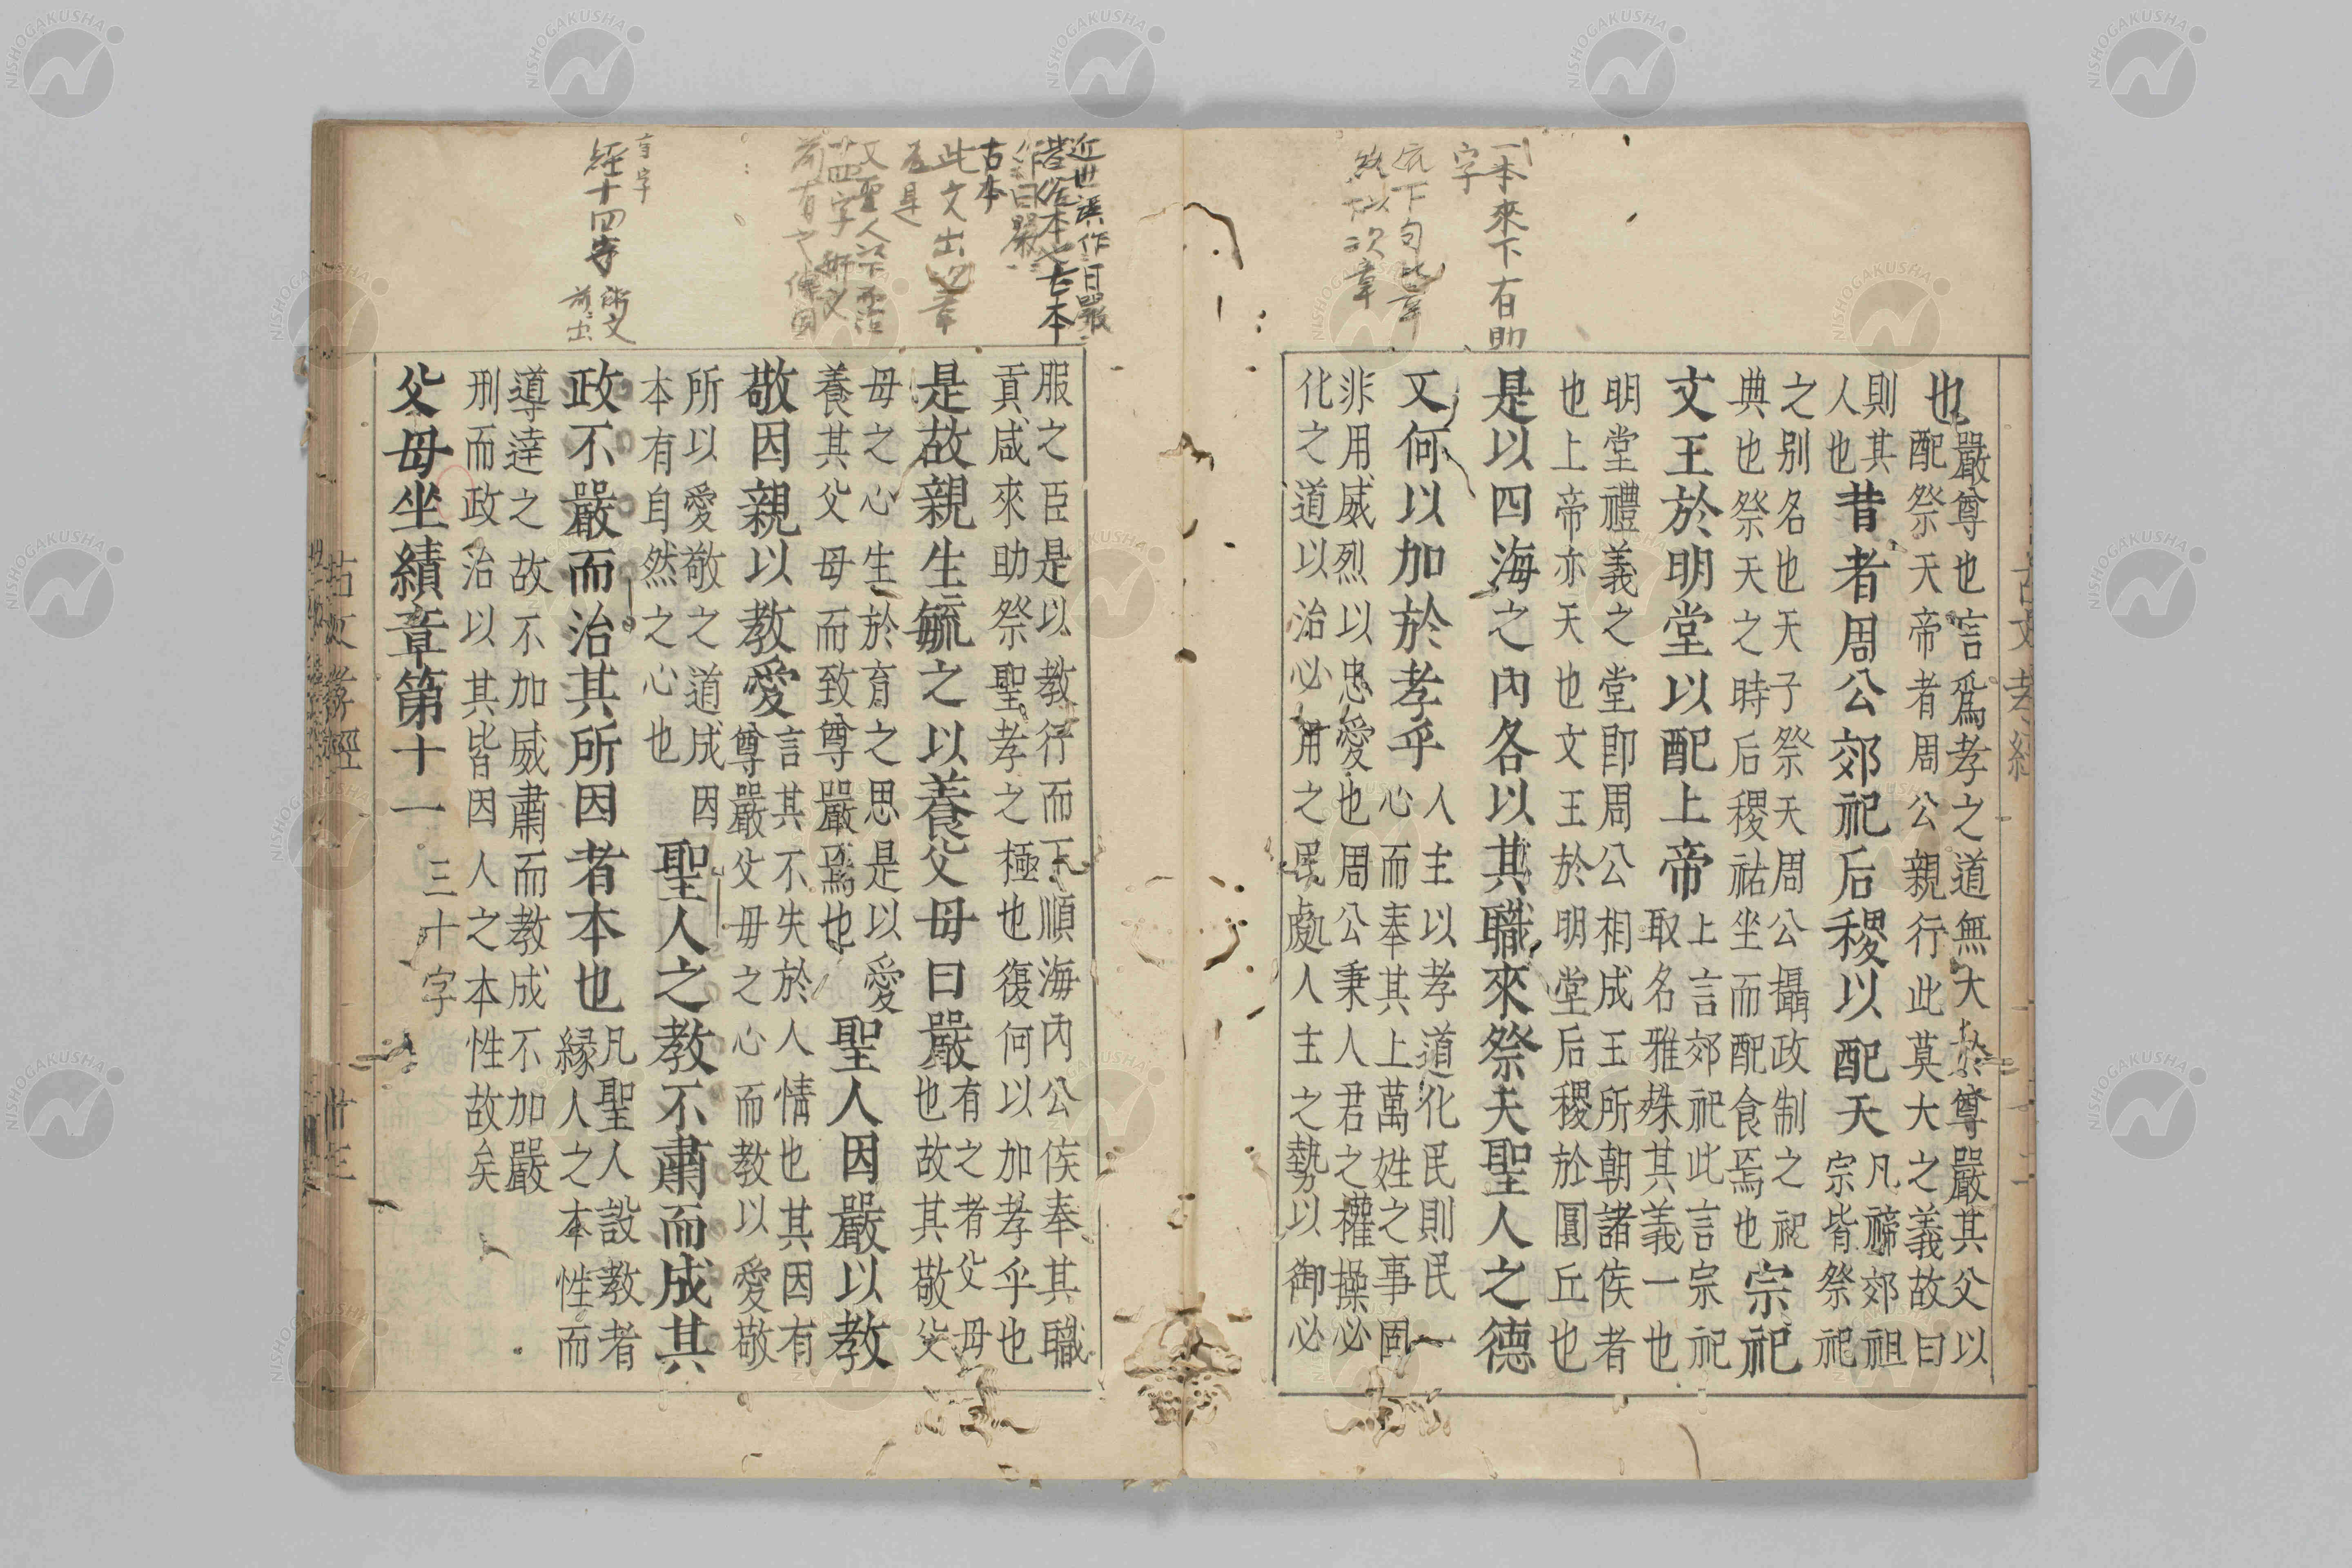 一本來下有助
字
近世誤作日嚴
古本
經十四字
也嚴尊也言爲孝之道無大於尊嚴其父以
配祭天帝者周公親行此莫大之義故曰
則其
人也
昔者周公郊祀后稷以配天
凡禘郊祖
宗皆祭祀
之别名也天子祭天周公攝政制之祀
典也祭天之時后稷祐坐而配食焉也
宗祀
文王於明堂以配上帝
上言郊祀此言宗祀
取名雅殊其義一也
明堂禮義之堂即周公相成王所朝諸侯者
也上帝亦天也文王於明堂后稷於圜丘也
是以四海之內各以其職來祭夫聖人之德
又何以加於孝乎
人主以孝道化民則民一
心而奉其上萬姓之事固
非用威烈以忠愛也周公秉人君之權操必
化之道以治必用之民處人主之勢以御必
服之臣是以教行而下順海內公侯奉其職
貢咸來助祭聖孝之極也復何以加孝乎也
是故親生毓之以養父母曰嚴
有之者父母
也故其敬父
母之心生於育之思是以愛
養其父母而致尊嚴焉也
聖人因嚴以教
敬因親以教愛
言其不失於人情也其因有
尊嚴父母之心而教以愛敬
所以愛敬之道成因
本有自然之心也
聖人之教不肅而成其
政不嚴而治其所因者本也
凡聖人設教者
緣人之本性而
導達之故不加威肅而教成不加嚴
刑而政治以其皆因人之本性故矣
父母坐績章第十一
三十字
古文孝經
廿三
NISHOGAKUSHA